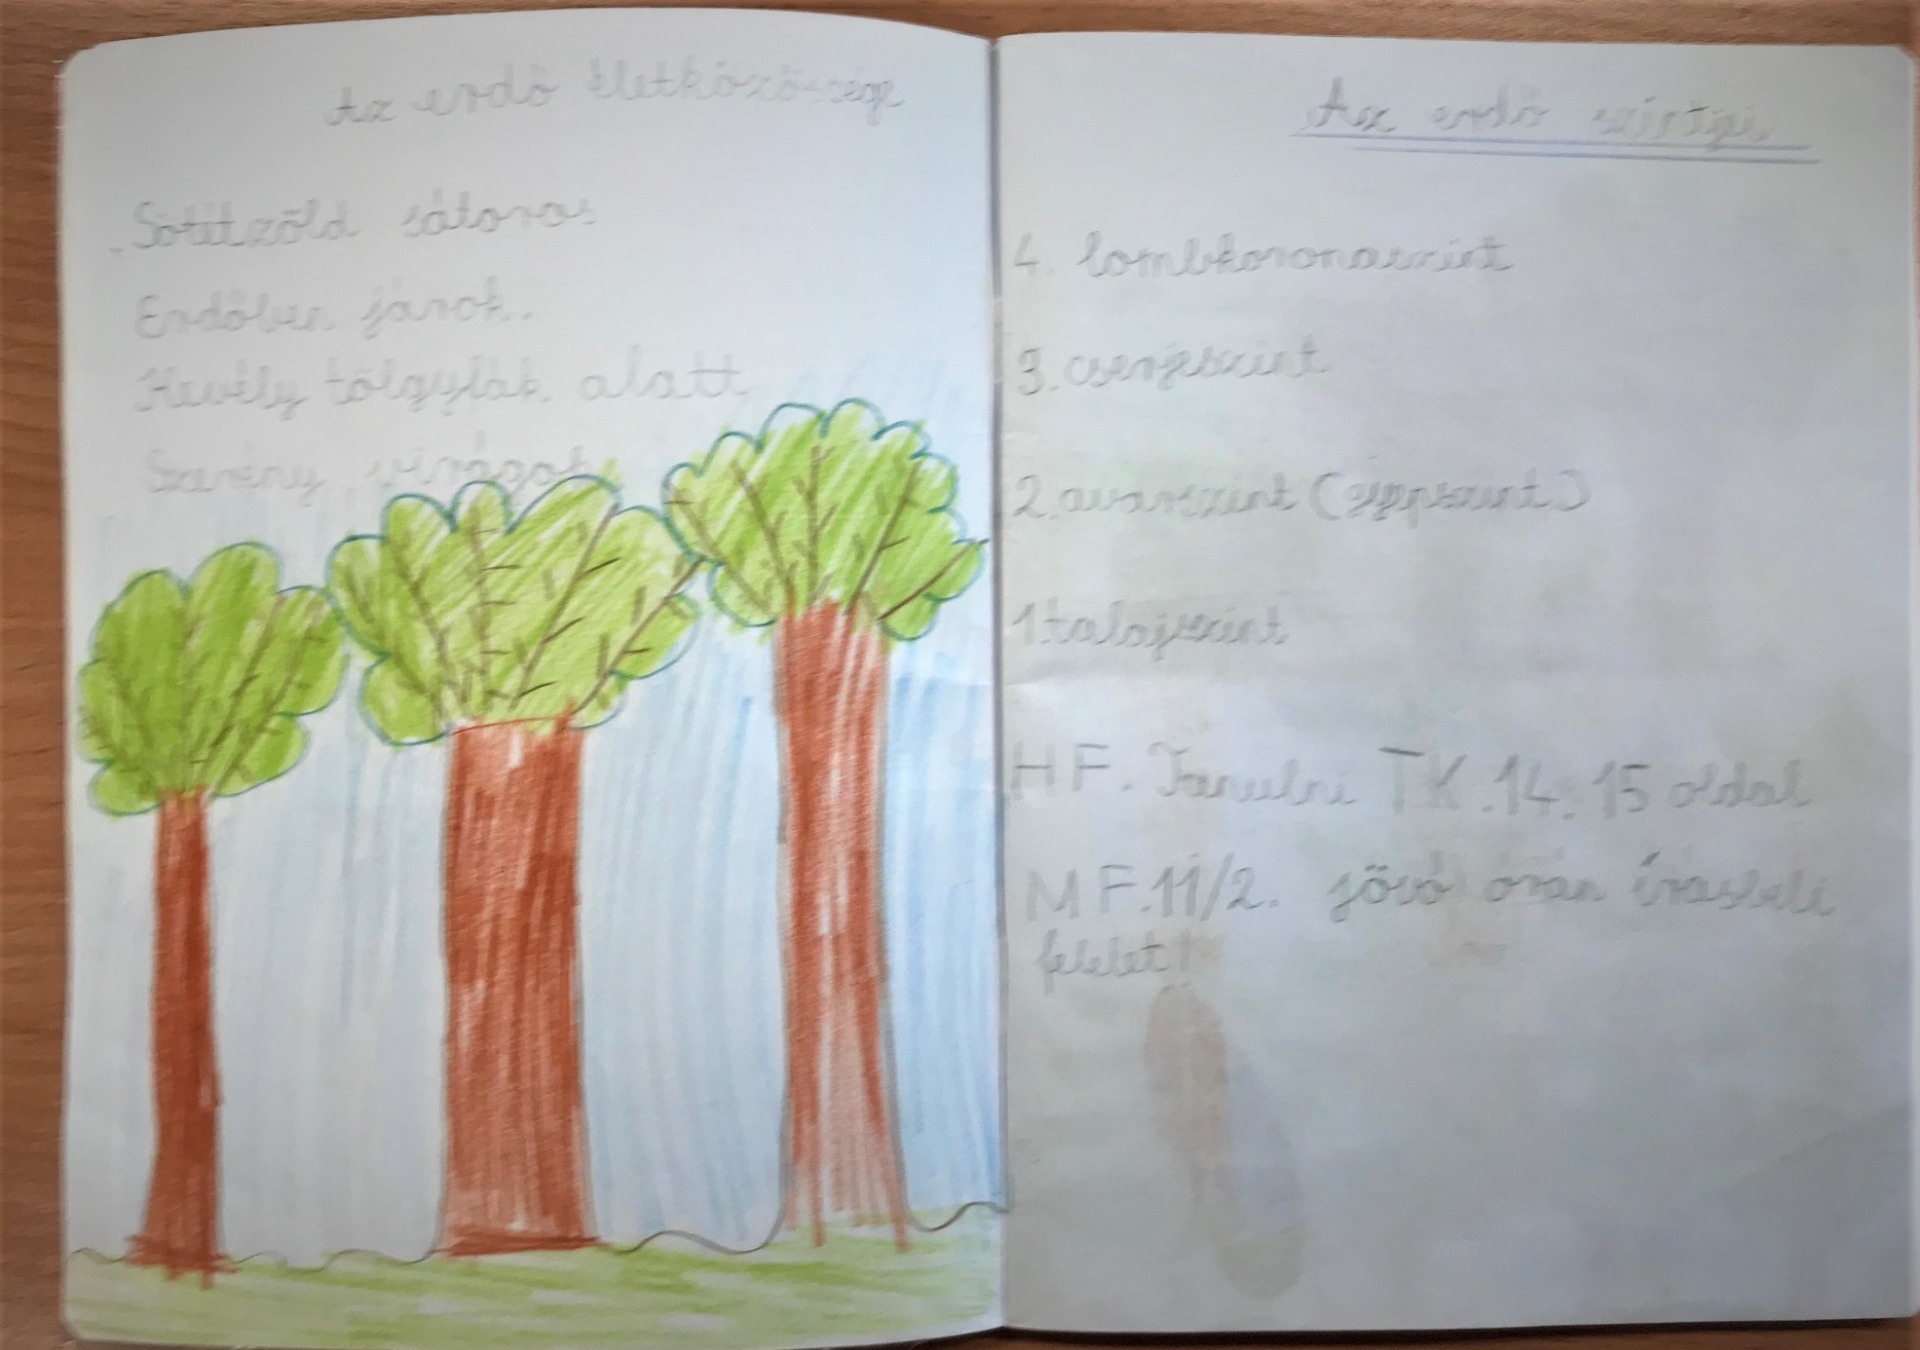 Az erdő életközössége
Sötétzöld sátoros
Erdőben járok.
Kevély tölgyfák alatt
Szerény virágos
Az erdő szintjei
4. lombkoronaszint
3. cserjeszint
2. avarszint (gyepszint)
1. talajszint
HF. Tanulni TK. 14. 15 oldal
MF. 11/2. jövő órán írásbeli
felelet!